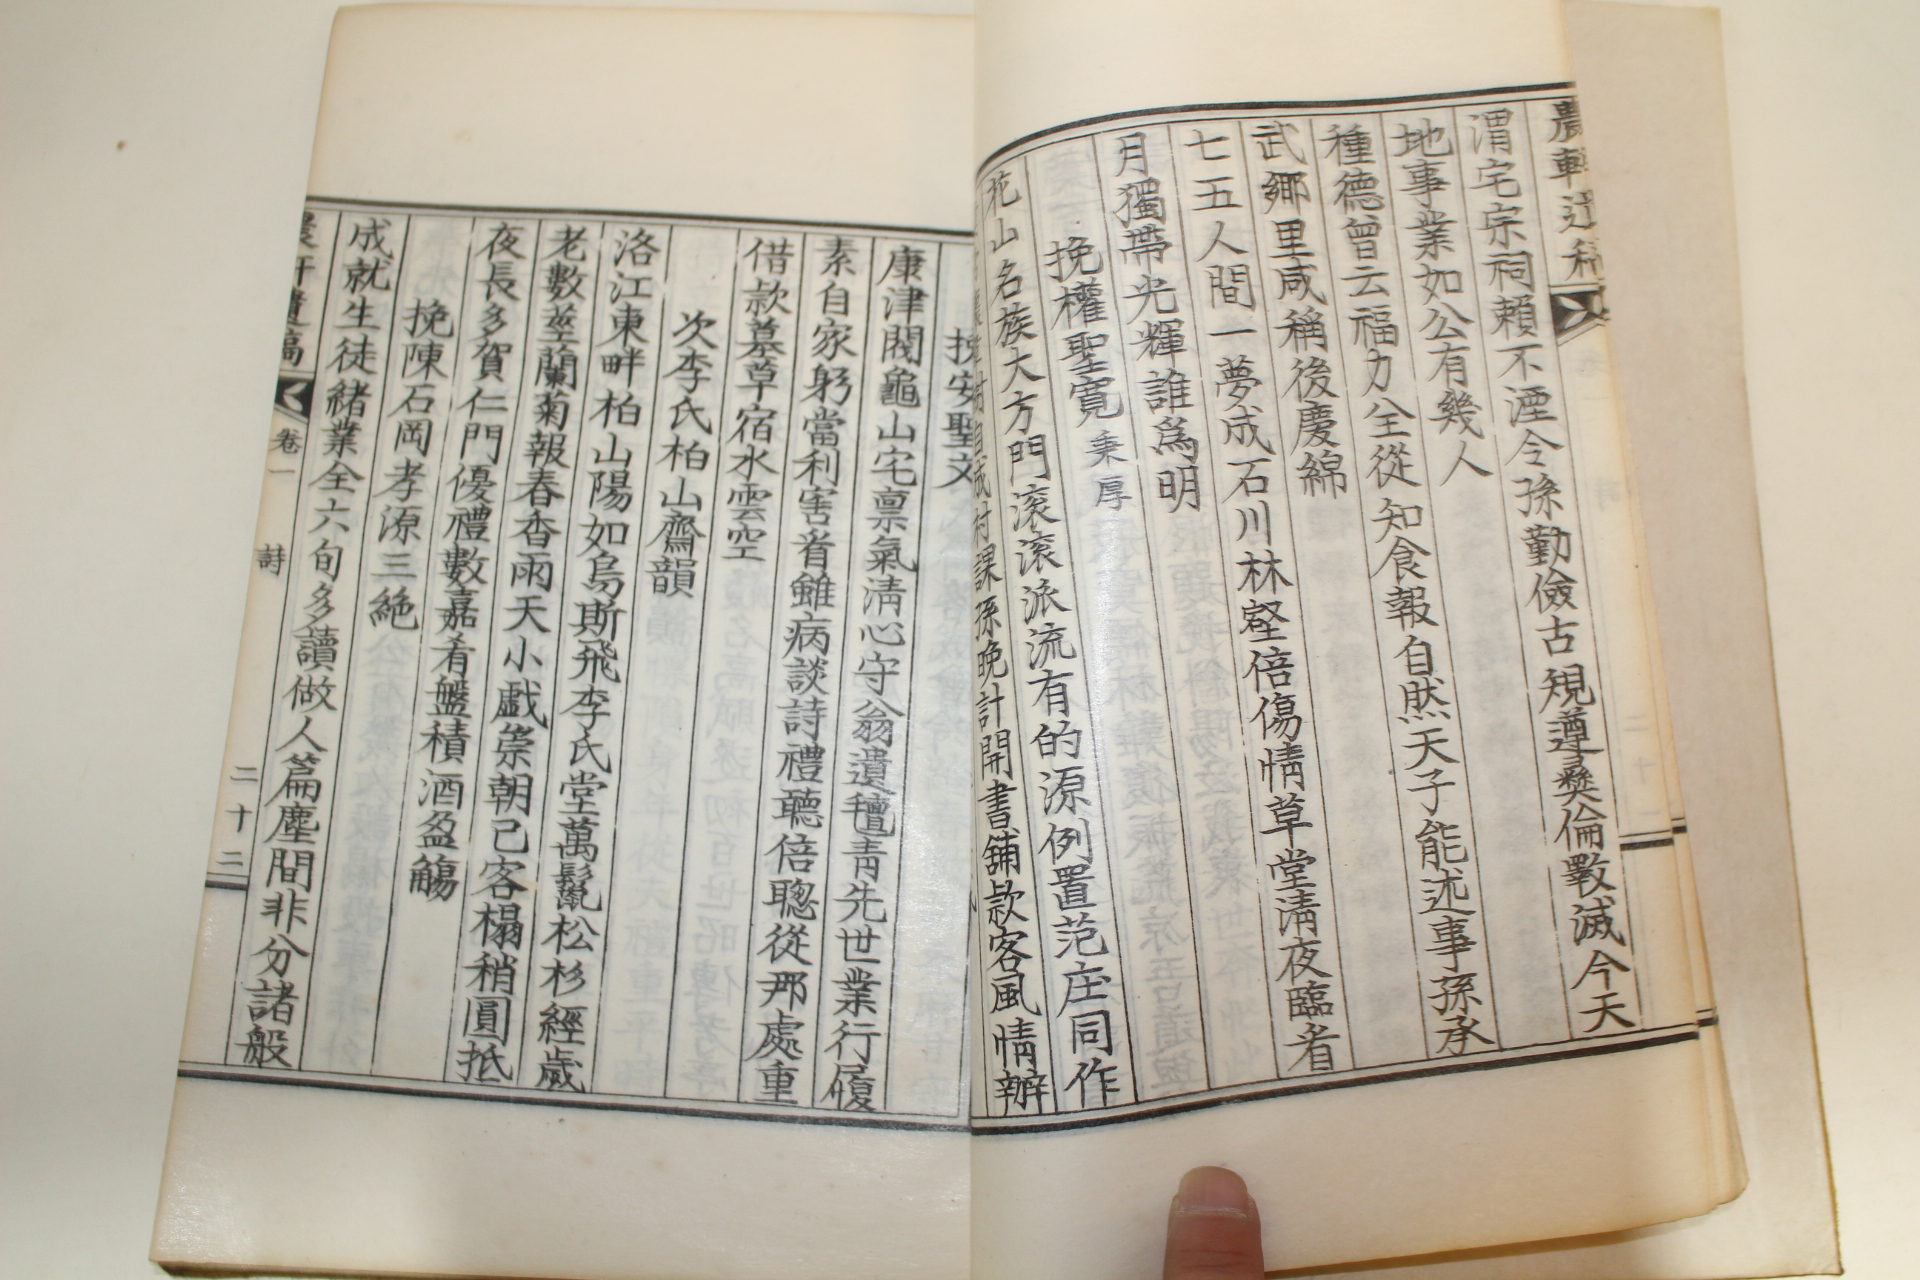 農軒遺稿
渭宅宗祠賴不湮令孫勤儉古規遵彜倫斁滅今天
地事業如公有幾人
種德曾云福力全從知食報自然天子能述事孫承
武鄉里咸稱後慶綿
七五人間一夢成石川林壑倍傷情草堂淸夜臨看
月獨帶光輝誰爲明
挽權聖寬秉厚
花山名族大方門滚滚派流有的源例置范庄同作
村課孫晚計開書鋪款客風情辦
挽安聖文
康津閥龜山宅禀氣淸心守翁遺氊靑先世業行履
素自家躬當利害省雖病談詩禮聽倍聰從那處重
借款墓草宿水雲空
次李氏柏山齋韻
洛江東畔柏山陽如鳥斯飛李氏堂萬鬣松杉經歲
老數莖蘭菊報春香雨天小戲崇朝已客榻稍圓抵
夜長多賀仁門優禮數嘉肴盤積酒盈觴
挽陳石岡孝源三絶
成就生徒緒業全六旬多讀做人篇塵間非分諸般
農軒遺稿 卷一 詩 二十二